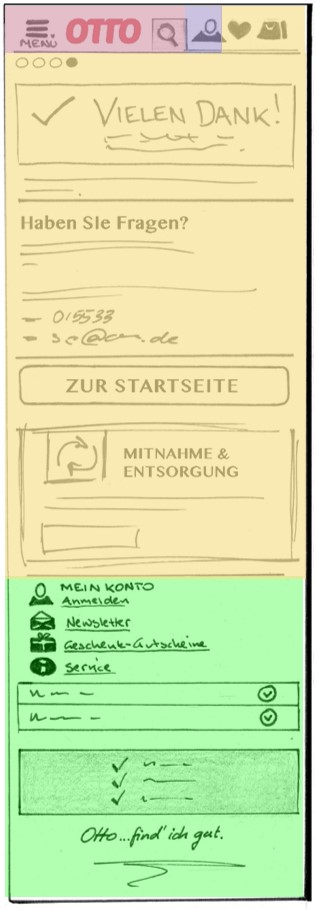 MENU OTTO
VIELEN DANK!
Haben SIe Fragen?
015533
ZUR STARTSEITE
MITNAHME &
ENTSORGUNG
MEIN KONTO
Anmelden
Newsletter
Geschenk-Gutscheine
Service
Otto...find' ich gut.